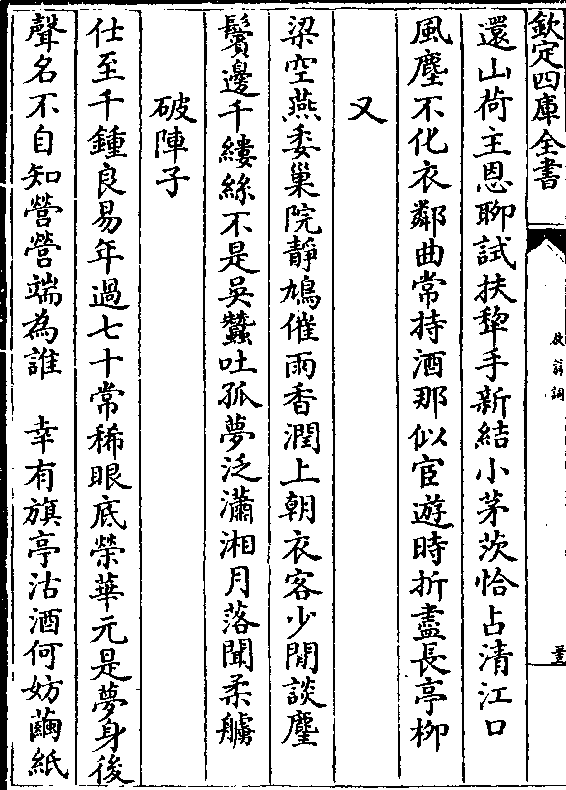 欽定四庫全書
放翁詞
還山荷主恩聊試扶犂手新結小茅茨恰占清江口
風塵不化衣鄰曲常持酒那似宦遊時折盡長亭柳
又
梁空燕委巢院靜鳩催雨香潤上朝衣客少閒談麈
鬢邊千縷絲不是吳蠶吐孤夢泛瀟湘月落聞柔艣
破陣子
仕至千鍾良易年過七十常稀眼底榮華元是夢身後
聲名不自知營營端為誰　幸有旗亭沽酒何妨繭紙